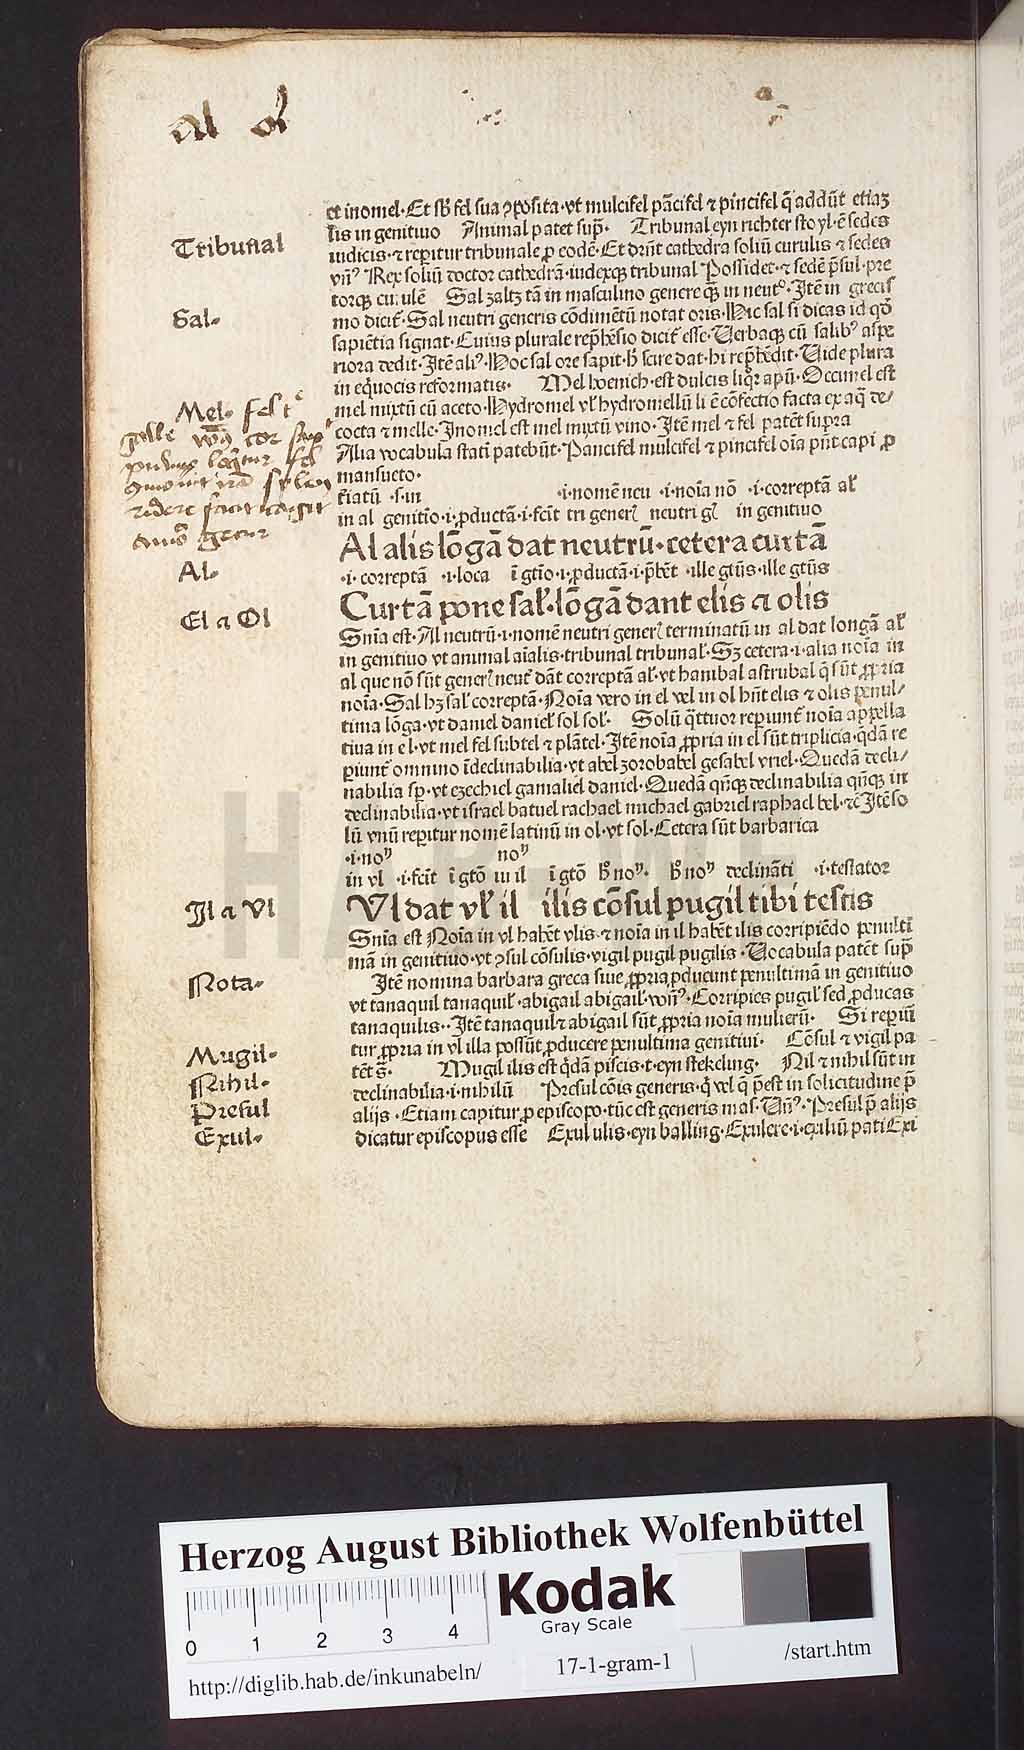 Al ol
et inomel·Et sb̄ fel sua ꝯposita·vt mulcifel pācifel ⁊ pincifel q̄ addūt etiaꝫ
lis in genitiuo Animal patet supͣ· Tribunal eyn richter stoyl·ē sedes
Tribunal
iudicis·⁊ reꝑitur tribunale ꝓ eodē·Et drn̄t cathedra soliū curulis ⁊ sedes
vn̄ꝰ Rex soliū doctor cathedrā·iudexqꝫ tribunal Possidet·⁊ sedē p̄sul·pre
torqꝫ curulē Sal zaltz tā in masculino genere qꝫ in neutͦ·Itē in grecis
Sal·
mo dicit᷑·Sal neutri generis cōdimētū notat oris·Hic sal si dicas id qd̄
sapiētia signat·Cuius plurale rep̄hēsio dicit᷑ esse·Verbaqꝫ cū salibꝰ aspe
riora dedit·Itē aliꝰ·Hoc sal ore sapit·hͥ scire dat·hi rep̄hēdit·Vide plura
in eq̄uocis reformatis· Mel hoenich·est dulcis liq̄r apū·Occimel est
Mel· fel
mel mixtū cū aceto·Hydromel vl̓ hydromellū li ē cōfectio facta ex aq̄ de/
cocta ⁊ melle·Inomel est mel mixtū vino·Itē mel ⁊ fel patēt supra
Alia vocabula statī patebūt·Pancifel mulcifel ⁊ pincifel oīa pn̄t capi ꝓ
mansueto·
cor
fel
splen
ridere facit cogit
gecur
tīatū ·s·in ·i·nomē neu ·i·noīa nō ·i·correptā al̓
in al genitīo·i·ꝓductā·i·fcīt tri generꝭ neutri gꝭ in genitiuo
Al alis lōgā dat neutrū·cetera curtā
Al·
·i·correptā ·i·loca ī gtīo·i·ꝓductā·i·p̄bēt ·ille gtūs·ille gtūs
Curtā pone sal̓·lōgā dant elis ⁊ olis
El ⁊ Ol
Snīa est·Al neutrū·i·nomē neutri generꝭ terminatū in al dat longā al̓
in genitiuo vt animal aīalis·tribunal tribunal̓·Sꝫ cetera·i·alia noīa in
al que nō sūt generꝭ neut᷑ dāt correptā al̓·vt hanibal astrubal q̄ sūt ꝓpria
noīa·Sal hꝫ sal̓ correptā·Noīa vero in el vel in ol hn̄t elis ⁊ olis penul/
tima lōga·vt daniel daniel̓ sol sol̓· Solū q̄ttuor reperiunt᷑ noīa appella
tiua in el·vt mel fel subtel ⁊ plātel·Itē noīa ꝓpria in el sūt triplicia·q̄dā re
ꝑiunt᷑ omnino īdeclinabilia·vt abel zorobabel gesabel vriel·Quedā decli/
nabilia sꝑ·vt ezechiel gamaliel daniel·Quedā qn̄qꝫ declinabilia qn̄qꝫ in
declinabilia·vt israel batuel rachael michael gabriel raphael bel·⁊c̄ Itē so
lū vnū reꝑitur nomē latinū in ol·vt sol·Cetera sūt barbarica
·i·noꝰ noꝰ
in vl ·i·fcīt ī gtō in il ī gtō hͦ noꝰ· hͦ noꝰ declināti ·i·testator
Vl dat vl̓ il ilis cōsul pugil tibi testis
Il ⁊ Vl
Snīa est Noīa in vl habēt vlis·⁊ noīa in il habēt ilis corripiēdo penulti
mā in genitiuo·vt ꝯsul cōsulis·vigil pugil pugilis·Vocabula patēt supͣ
Itē nomina barbara greca siue ꝓpria ꝓducunt penultimā in genitiuo
Nota·
vt tanaquil tanaquil̓·abigail abigail̓·vn̄ꝰ·Corripies pugil̓ sed ꝓducas
tanaquilis··Itē tanaquil ⁊ abigail sūt ꝓpria noīa mulierū· Si reperiū
tur ꝓpria in vl illa possūt ꝓducere penultima genitiui· Cōsul ⁊ vigil pa
Mugil·
tēt sͣ· Mugil ilis est q̄dā piscis·t·eyn stekeling· Nil ⁊ nihil sūt in
Nihil·
declinabilia·i·nihilū Presul cōis generis·q̄ vel q̄ p̄est in solicitudine p̄
Presul
alijs·Etiam capitur ꝓ episcopo·tūc est generis mas·Vn̄ꝰ·Presul p̄ alijs
Exul·
dicatur episcopus esse Exul ulis·eyn balling·Exulere·i·exiliū pati Exi
HAB WF
Herzog August Bibliothek Wolfenbüttel
0 1 2 3 4
Kodak
Gray Scale
http://diglib.hab.de/inkunabeln/
17-1-gram-1
/start.htm